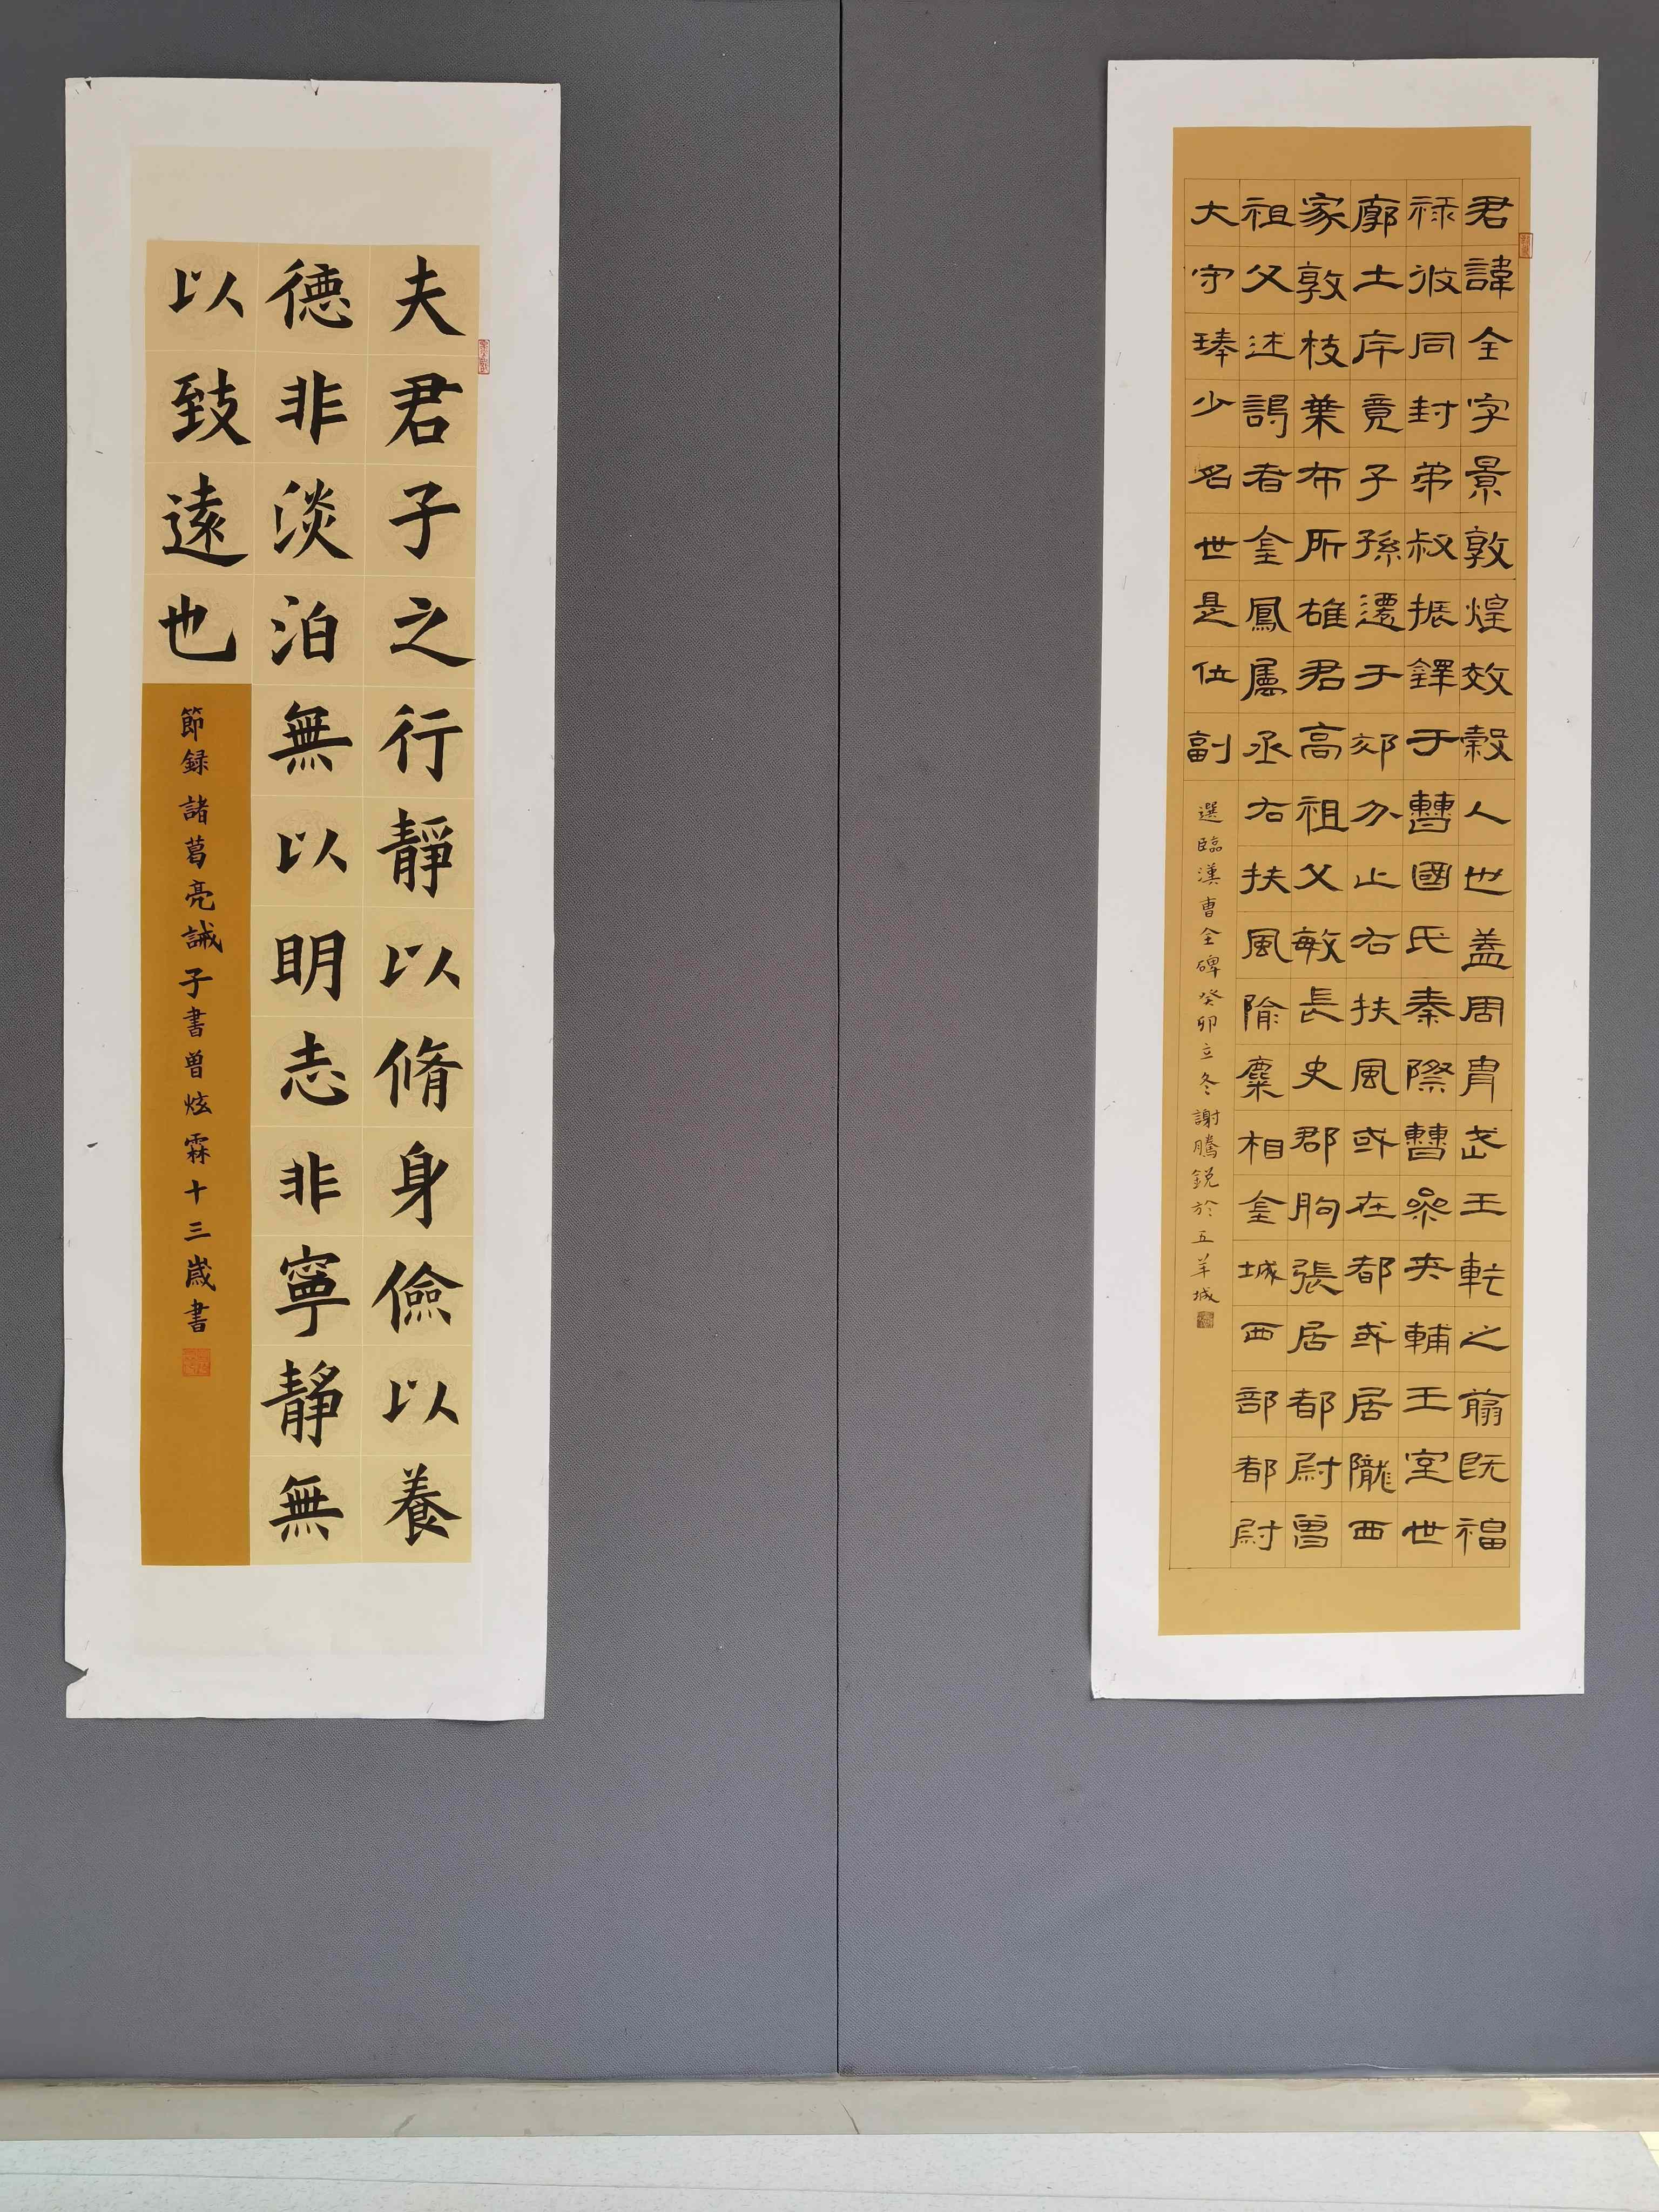 夫君子之行靜以脩身儉以養
德非淡泊無以明志非寧靜無
以致遠也
節録諸葛亮誡子書曾炫霖十三歲書
君諱全字景敦煌效穀人也蓋周胄武王乾之翦既福
祿攸同封弟叔振鐸于曹國氏秦際曹參夾輔王室世
廓土斥竟子孫遷于郊分止右扶風或在都或居隴西
家敦枝葉布所雄君高祖父敏長史郡朐張居都尉曾
祖父述謁者金鳳屬丞右扶風隃麋相金城西部都尉
大守琫少名世是位副
選臨漢曹全碑癸卯立冬謝騰銳於五羊城